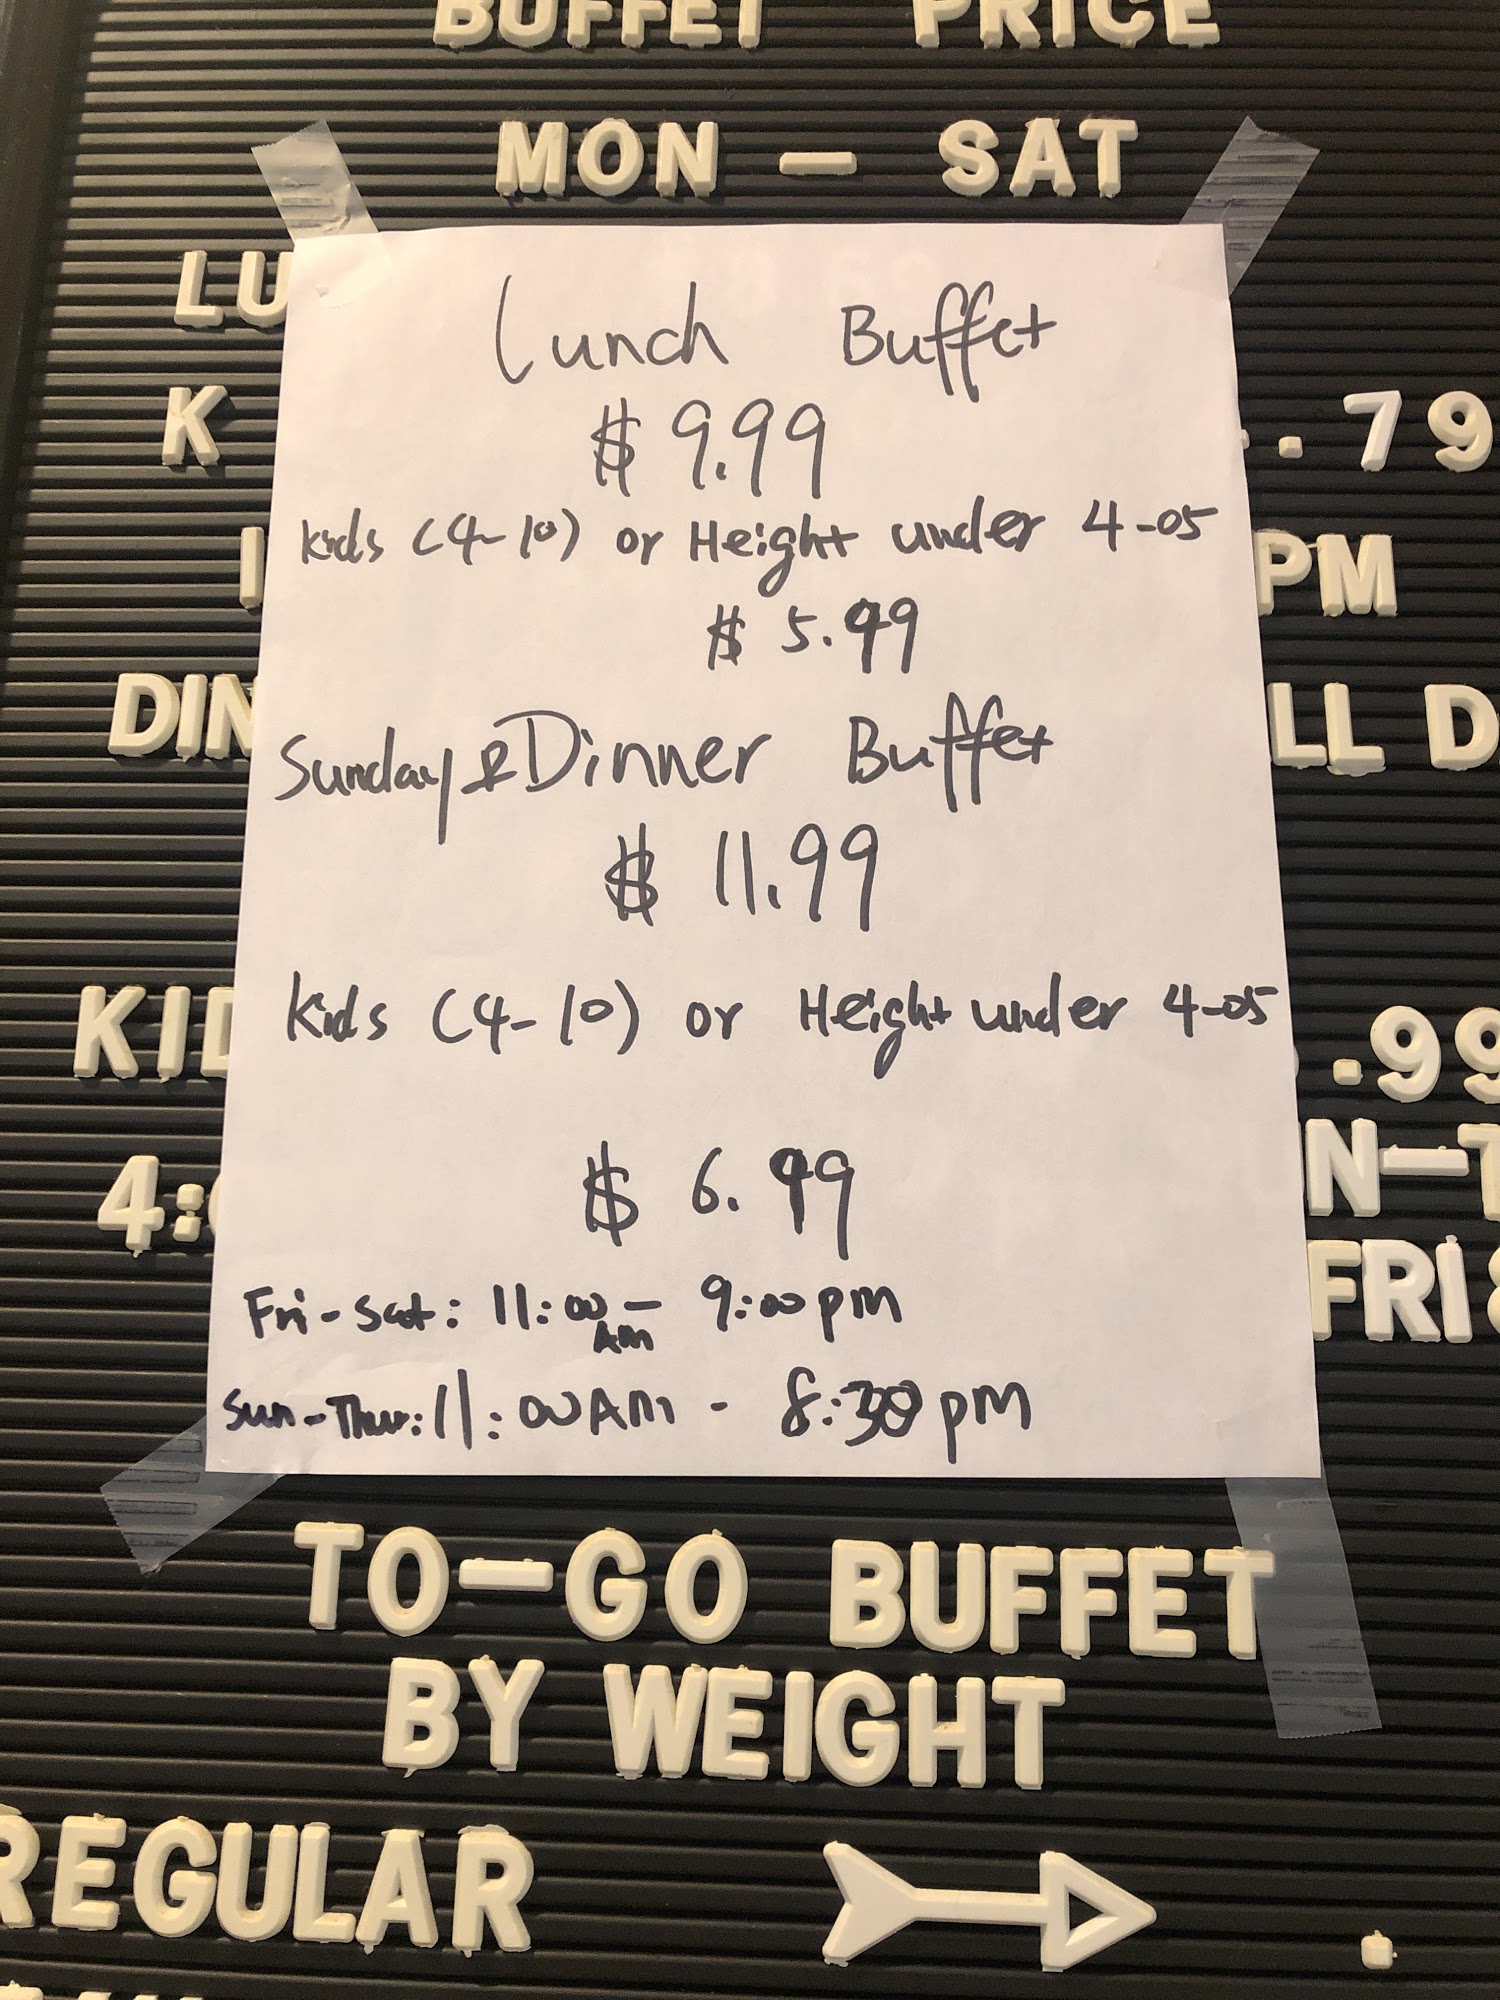 BUFFET PRICE
MON — SAT
LU
Lunch Buffet
$9.99
K .79
Kids (4-10) or Height under 4-05
I PM
$5.99
DIN LL D
Sunday & Dinner Buffet
$11.99
Kids (4-10) or Height under 4-05
KID .99
4: N—T
$6.99
FRI&
Fri-Sat: 11:00 AM — 9:00pm
Sun-Thur: 11:00AM - 8:30pm
TO—GO BUFFET
BY WEIGHT
REGULAR .